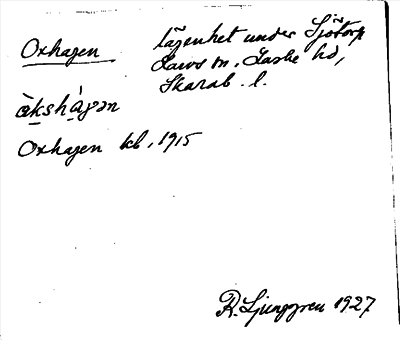 Oxhagen
lägenhet under Sjötorp
Larvs sn, Laske hd,
Skarab. l.
àkshágen
Oxhagen kb, 1915
R. Ljunggren 1927